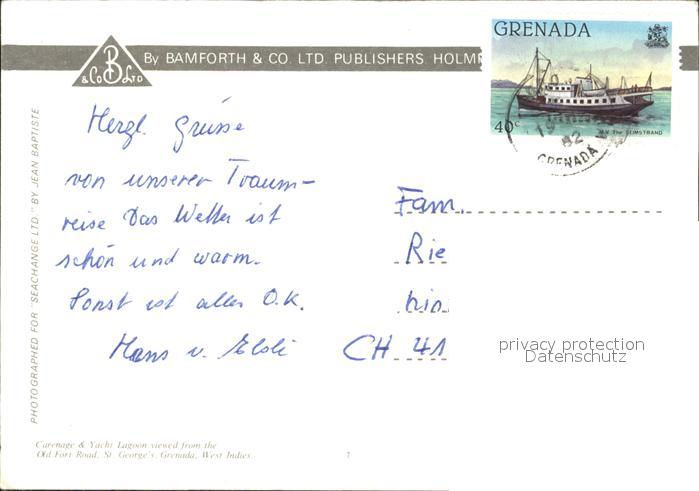 GRENADA
By BAMFORTH & CO. LTD. PUBLISHERS HOLM
B
& Co LTD
40c
M.V. The Scimstrand
19
82
GRENADA
PHOTOGRAPHED FOR "SEACHANGE LTD." BY JEAN BAPTISTE
Herzl. Grüsse
von unserer Traum-
reise Das Wetter ist
schön und warm.
Sonst ist alles O.K.
Hans u. Elsli
Fam.
Rie
CH 41
privacy protection
Datenschutz
Carenage & Yacht Lagoon viewed from the
Old Fort Road, St. George's, Grenada, West Indies.
7